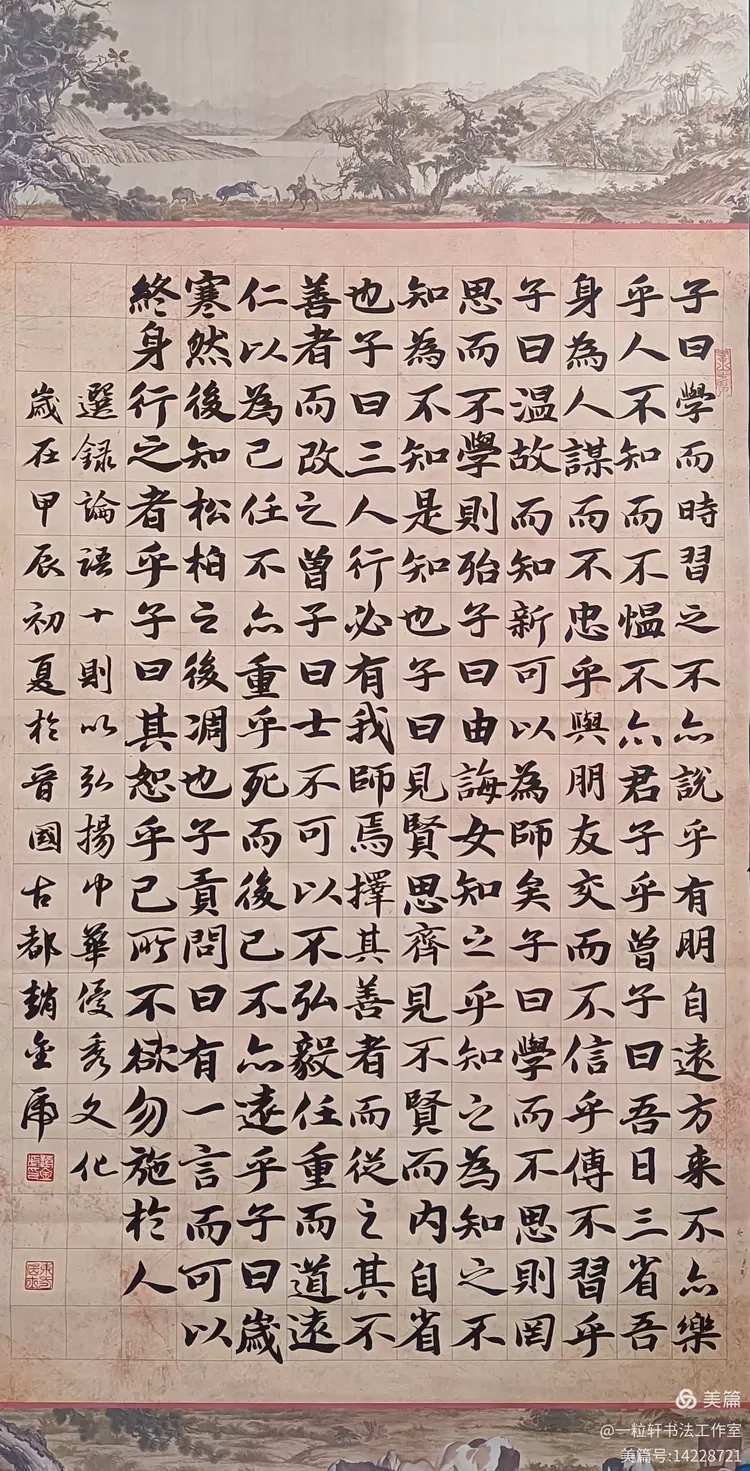 子曰學而時習之不亦說乎有朋自遠方来不亦樂
乎人不知而不愠不亦君子乎曾子曰吾日三省吾
身為人謀而不忠乎與朋友交而不信乎傳不習乎
子曰温故而知新可以為師矣子曰學而不思則罔
思而不學則殆子曰由誨女知之乎知之為知之不
知為不知是知也子曰見賢思齊見不賢而内自省
也子曰三人行必有我師焉擇其善者而從之其不
善者而改之曾子曰士不可以不弘毅任重而道遠
仁以為己任不亦重乎死而後已不亦遠乎子曰歲
寒然後知松柏之後凋也子貢問曰有一言而可以
終身行之者乎子曰其恕乎己所不欲勿施於人
選録論語十則以弘揚中華優秀文化
歲在甲辰初夏於晉國古都趙金虎
美篇
@一粒轩书法工作室
美篇号:14228721